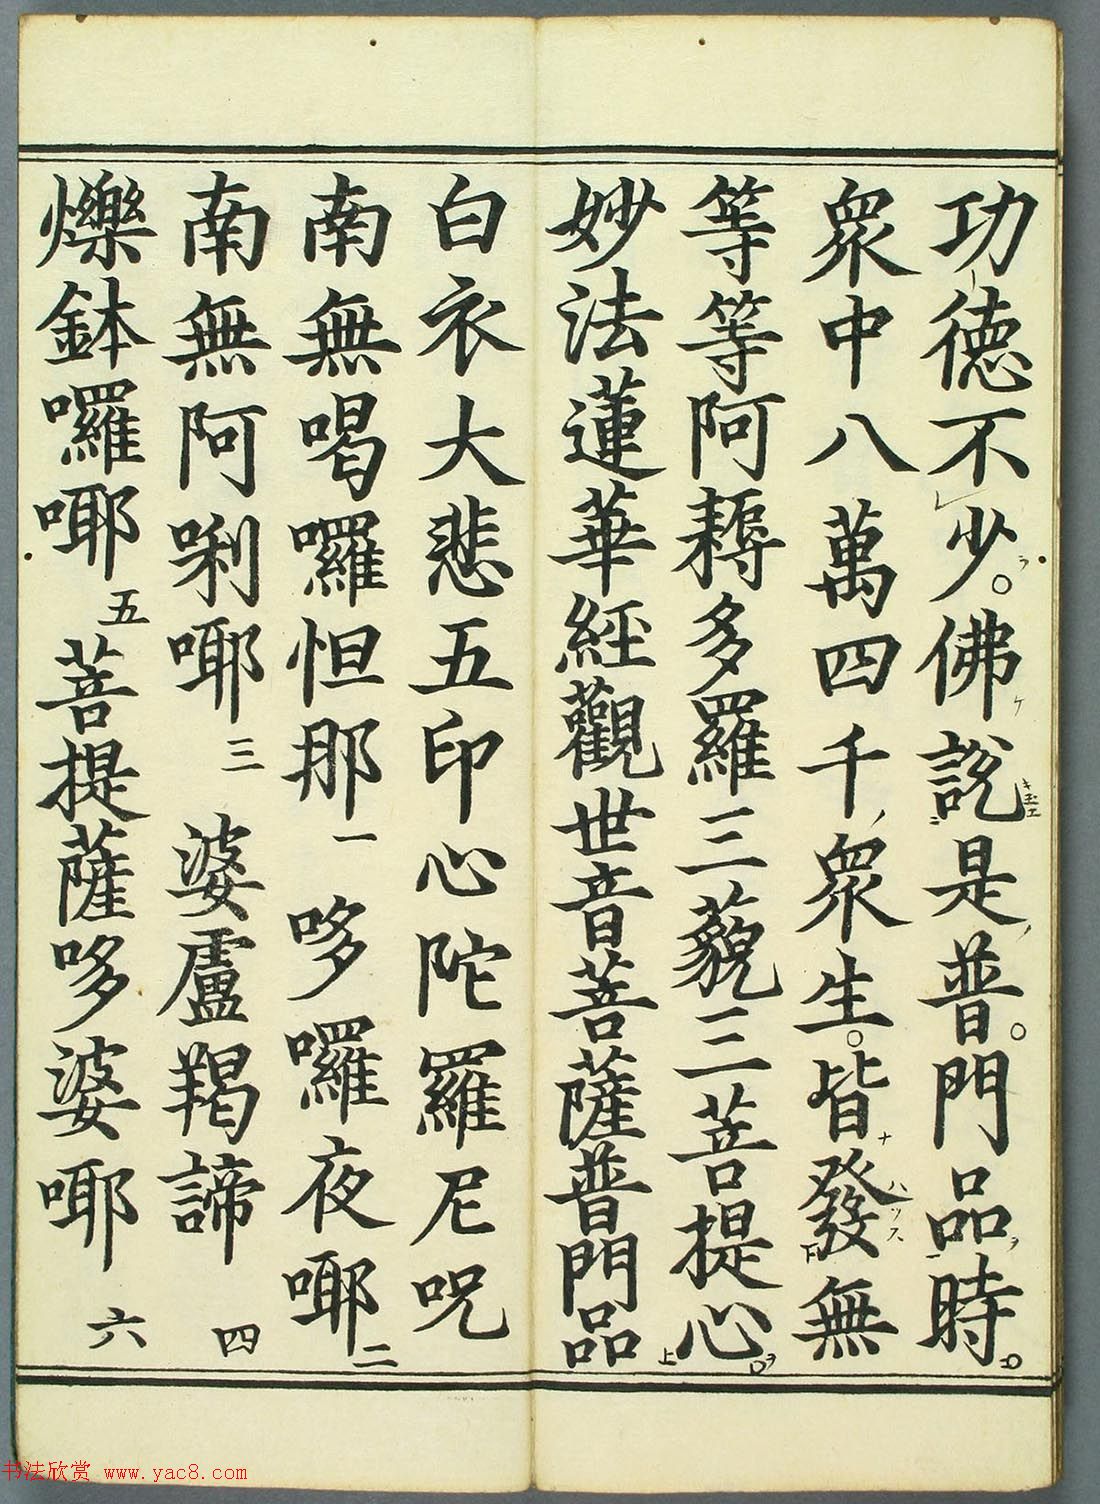 功德不少佛說是普門品時
眾中八萬四千眾生皆發無
等等阿耨多羅三藐三菩提心
妙法蓮華經觀世音菩薩普門品
白衣大悲五印心陀羅尼咒
南無喝囉怛那一 哆囉夜㖿二
南無阿唎㖿三 婆盧羯諦四
爍鉢囉㖿五菩提薩哆婆㖿六
书法欣赏 www.yac8.com